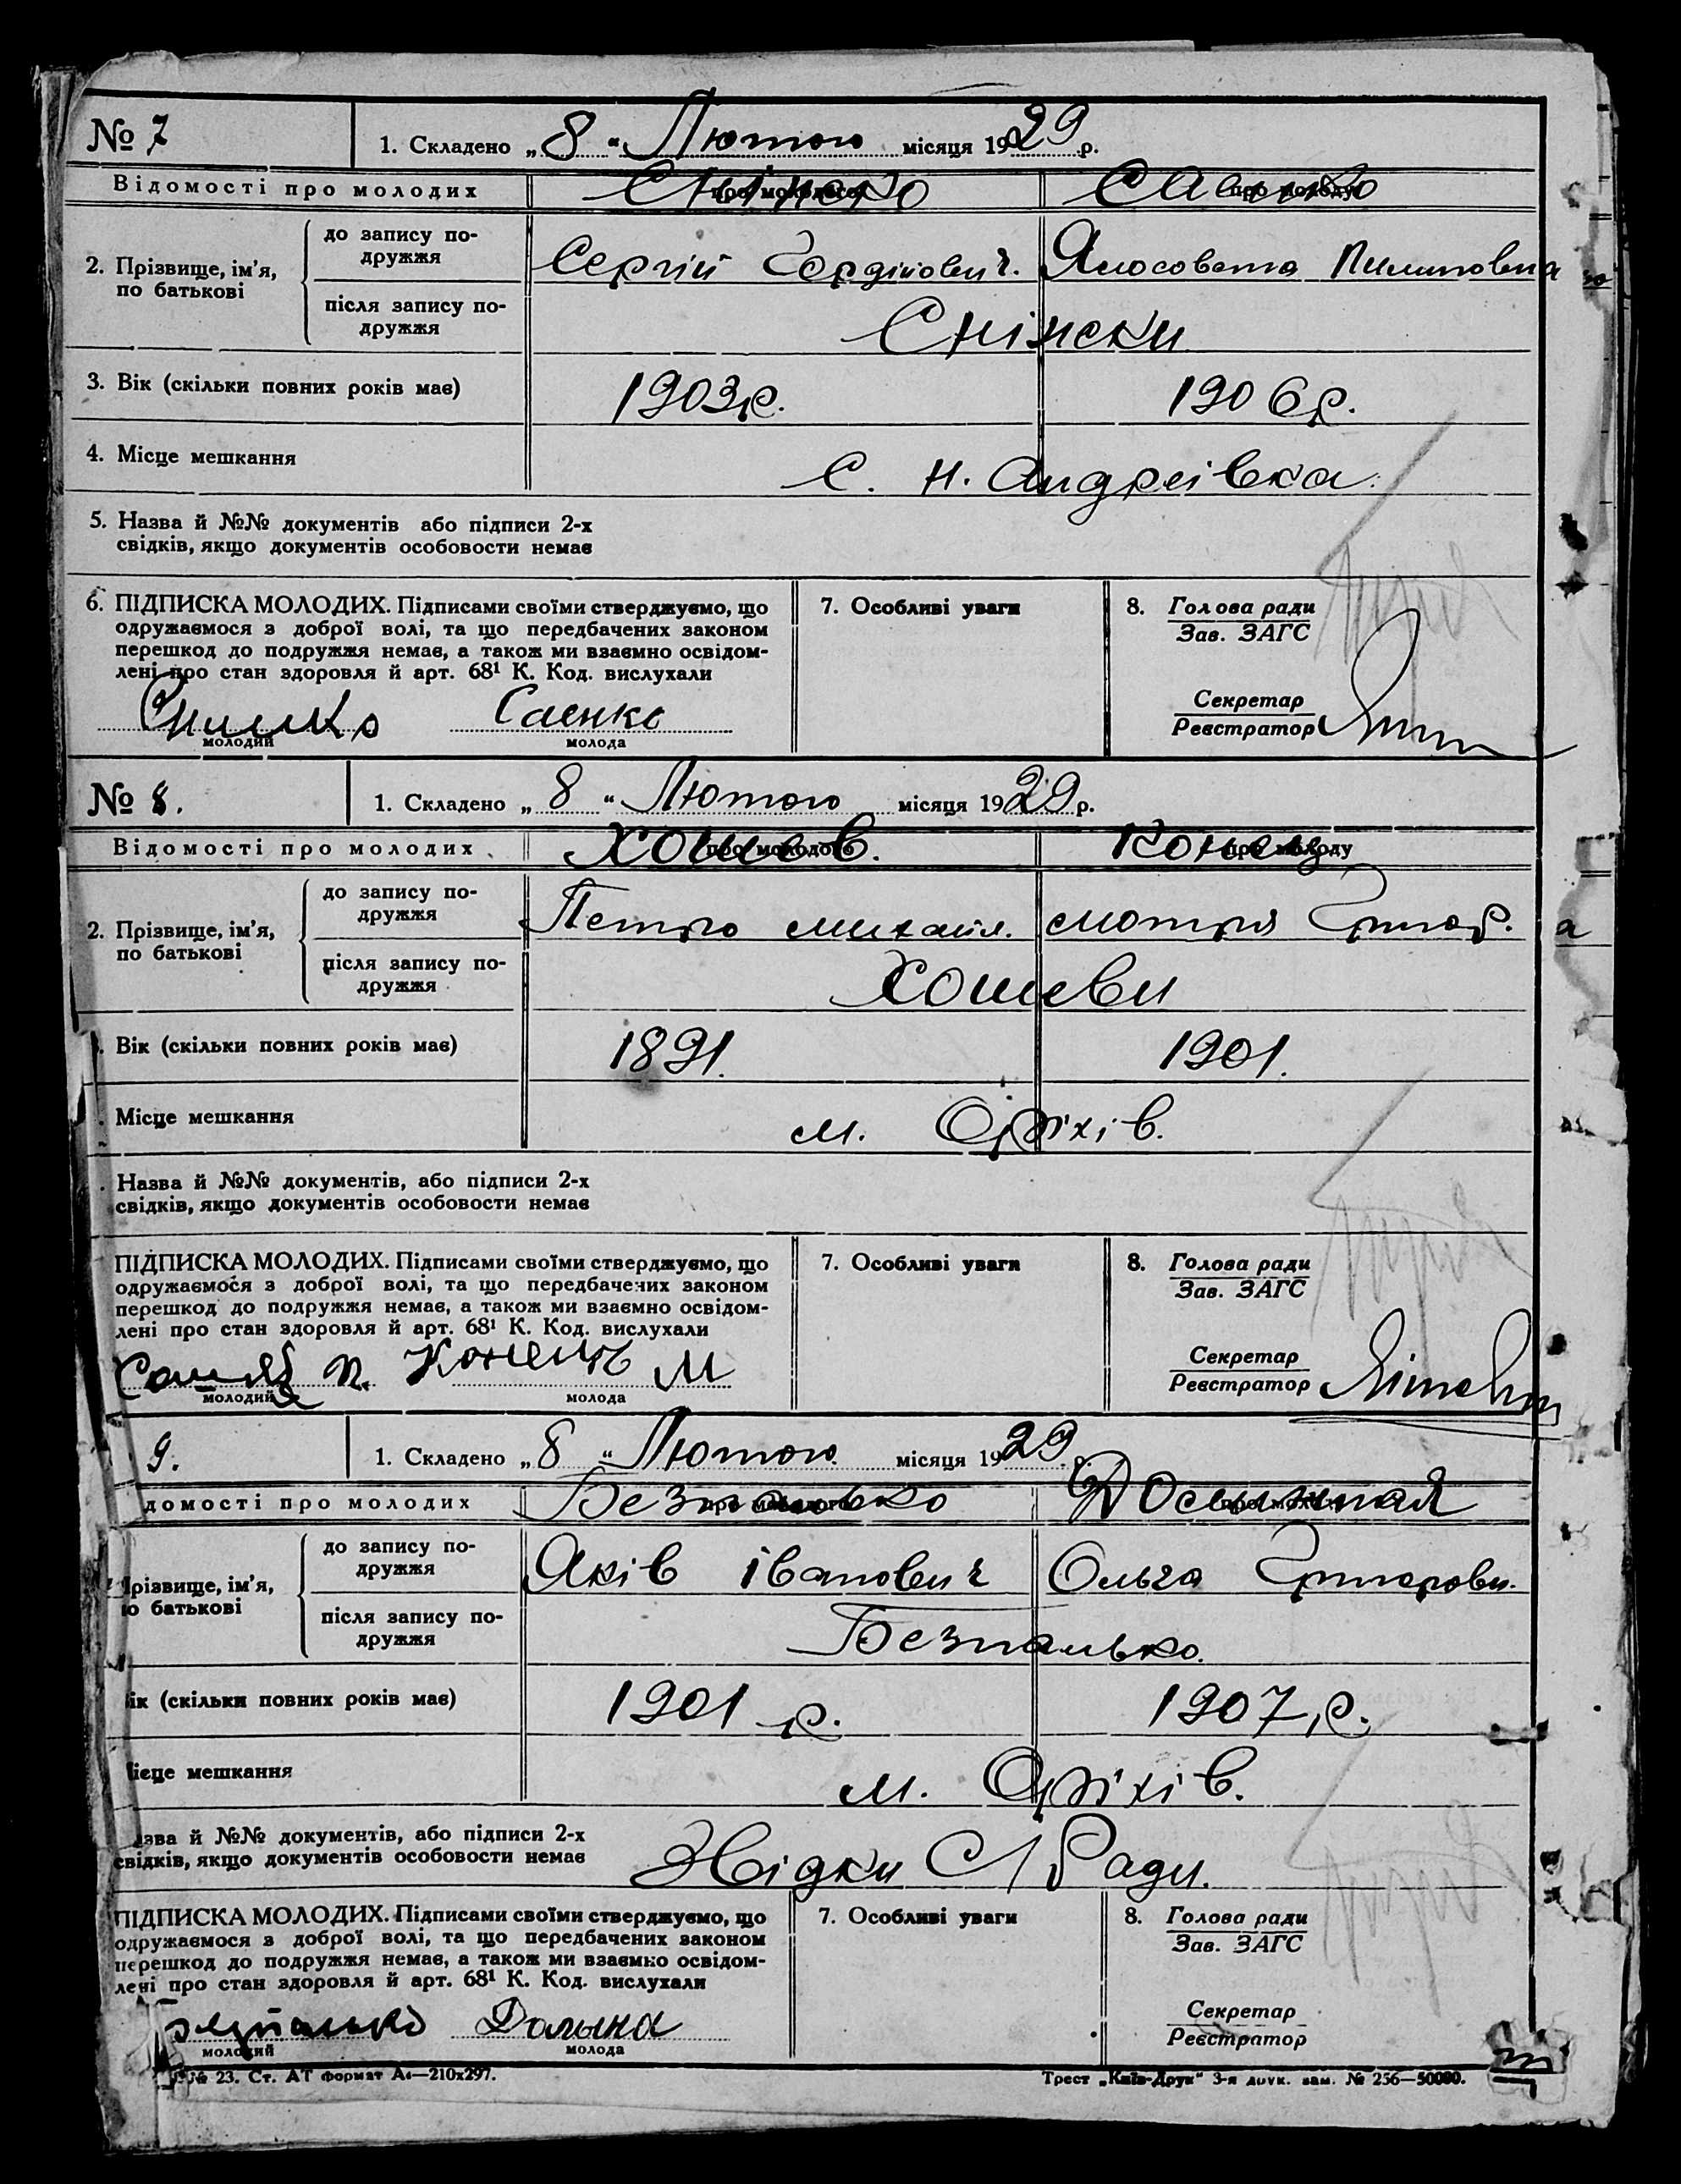 № 7
1. Складено „ 8 “ Лютого місяця 1929 р.
Відомості про молодих про молодого про молоду
Саенко
до запису по-
дружжя
2. Прізвище, ім'я,
по батькові
Сергій Гордійович. Ялосовета Пилиповна
після запису по-
дружжя
Снінски
3. Вік (скільки повних років має) 1903 р. 1906 р.
4. Місце мешкання С. Н. Андреівка.
5. Назва й №№ документів або підписи 2-х
свідків, якщо документів особовости немає
6. ПІДПИСКА МОЛОДИХ. Підписами своїми стверджуємо, що
одружаємося з доброї волі, та що передбачених законом
перешкод до подружжя немає, а також ми взаємно освідом-
лені про стан здоровля й арт. 68¹ К. Код. вислухали
Саенко
молодий молода
7. Особливі уваги
8. Голова ради
Зав. ЗАГС
Секретар
Реєстратор
№ 8.
1. Складено „ 8 “ Лютого місяця 1929 р.
Відомості про молодих про молодого про молоду
Хошев. Конец
до запису по-
дружжя
2. Прізвище, ім'я,
по батькові
Петро Михайл. Мотря Григор.
після запису по-
дружжя
Хошеви
Вік (скільки повних років має) 1891. 1901.
Місце мешкання м. Оріхів.
Назва й №№ документів, або підписи 2-х
свідків, якщо документів особовости немає
ПІДПИСКА МОЛОДИХ. Підписами своїми стверджуємо, що
одружаємося з доброї волі, та що передбачених законом
перешкод до подружжя немає, а також ми взаємно освідом-
лені про стан здоровля й арт. 68¹ К. Код. вислухали
П. М
молодий молода
7. Особливі уваги
8. Голова ради
Зав. ЗАГС
Секретар
Реєстратор
9.
1. Складено „ 8 “ Лютого місяця 1929 р.
домості про молодих про молодого про молоду
Безпалько
до запису по-
дружжя
різвище, ім'я,
о батькові
Яків Іванович Ольга Григоровн.
після запису по-
дружжя
Безпалько.
ік (скільки повних років має) 1901 р. 1907 р.
ісце мешкання м. Оріхів.
зва й №№ документів, або підписи 2-х
свідків, якщо документів особовости немає
Звідки С/Ради.
ПІДПИСКА МОЛОДИХ. Підписами своїми стверджуємо, що
одружаємося з доброї волі, та що передбачених законом
перешкод до подружжя немає, а також ми взаємно освідом-
лені про стан здоровля й арт. 68¹ К. Код. вислухали
молодий молода
7. Особливі уваги
8. Голова ради
Зав. ЗАГС
Секретар
Реєстратор
№ 23. Ст. АТ формат А4—210х297.
Трест „Київ-Друк“ 3-я друк. зам. № 256—50000.